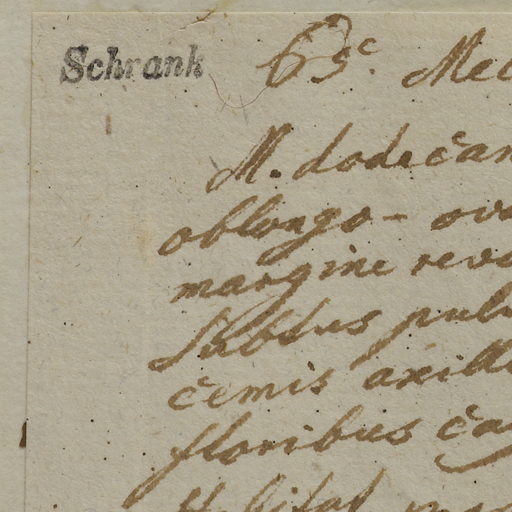 Schrank 65c Mec
M. dodecan
oblongo- ova
margine revo
subtus pulv
cemis axilla
floribus ca
Habitat